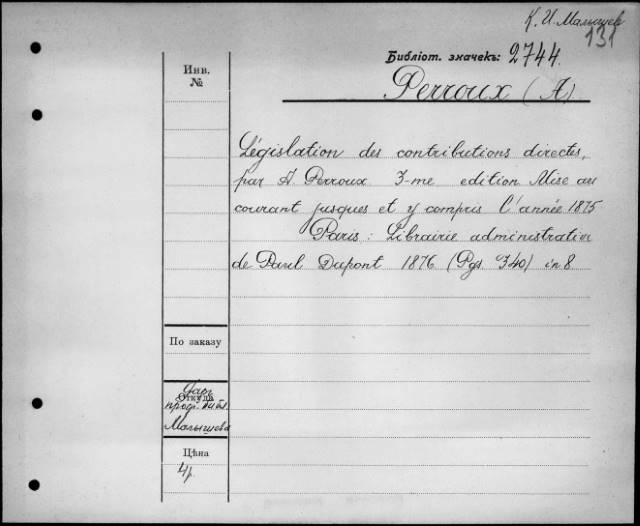 К. И. Малышев
131
Библіот. значекъ: 2744.
Perroux (A)
Инв.
№
Législation des contributions directes,
par A. Perroux 3-me edition. Mise au
courant jusques et y compris l'année 1875
Paris: Librairie administrative
de Paul Dupont 1876 (Pgs. 340) in 8
По заказу
Откуда
Даръ
проф.
Малышева
Цѣна
4р.